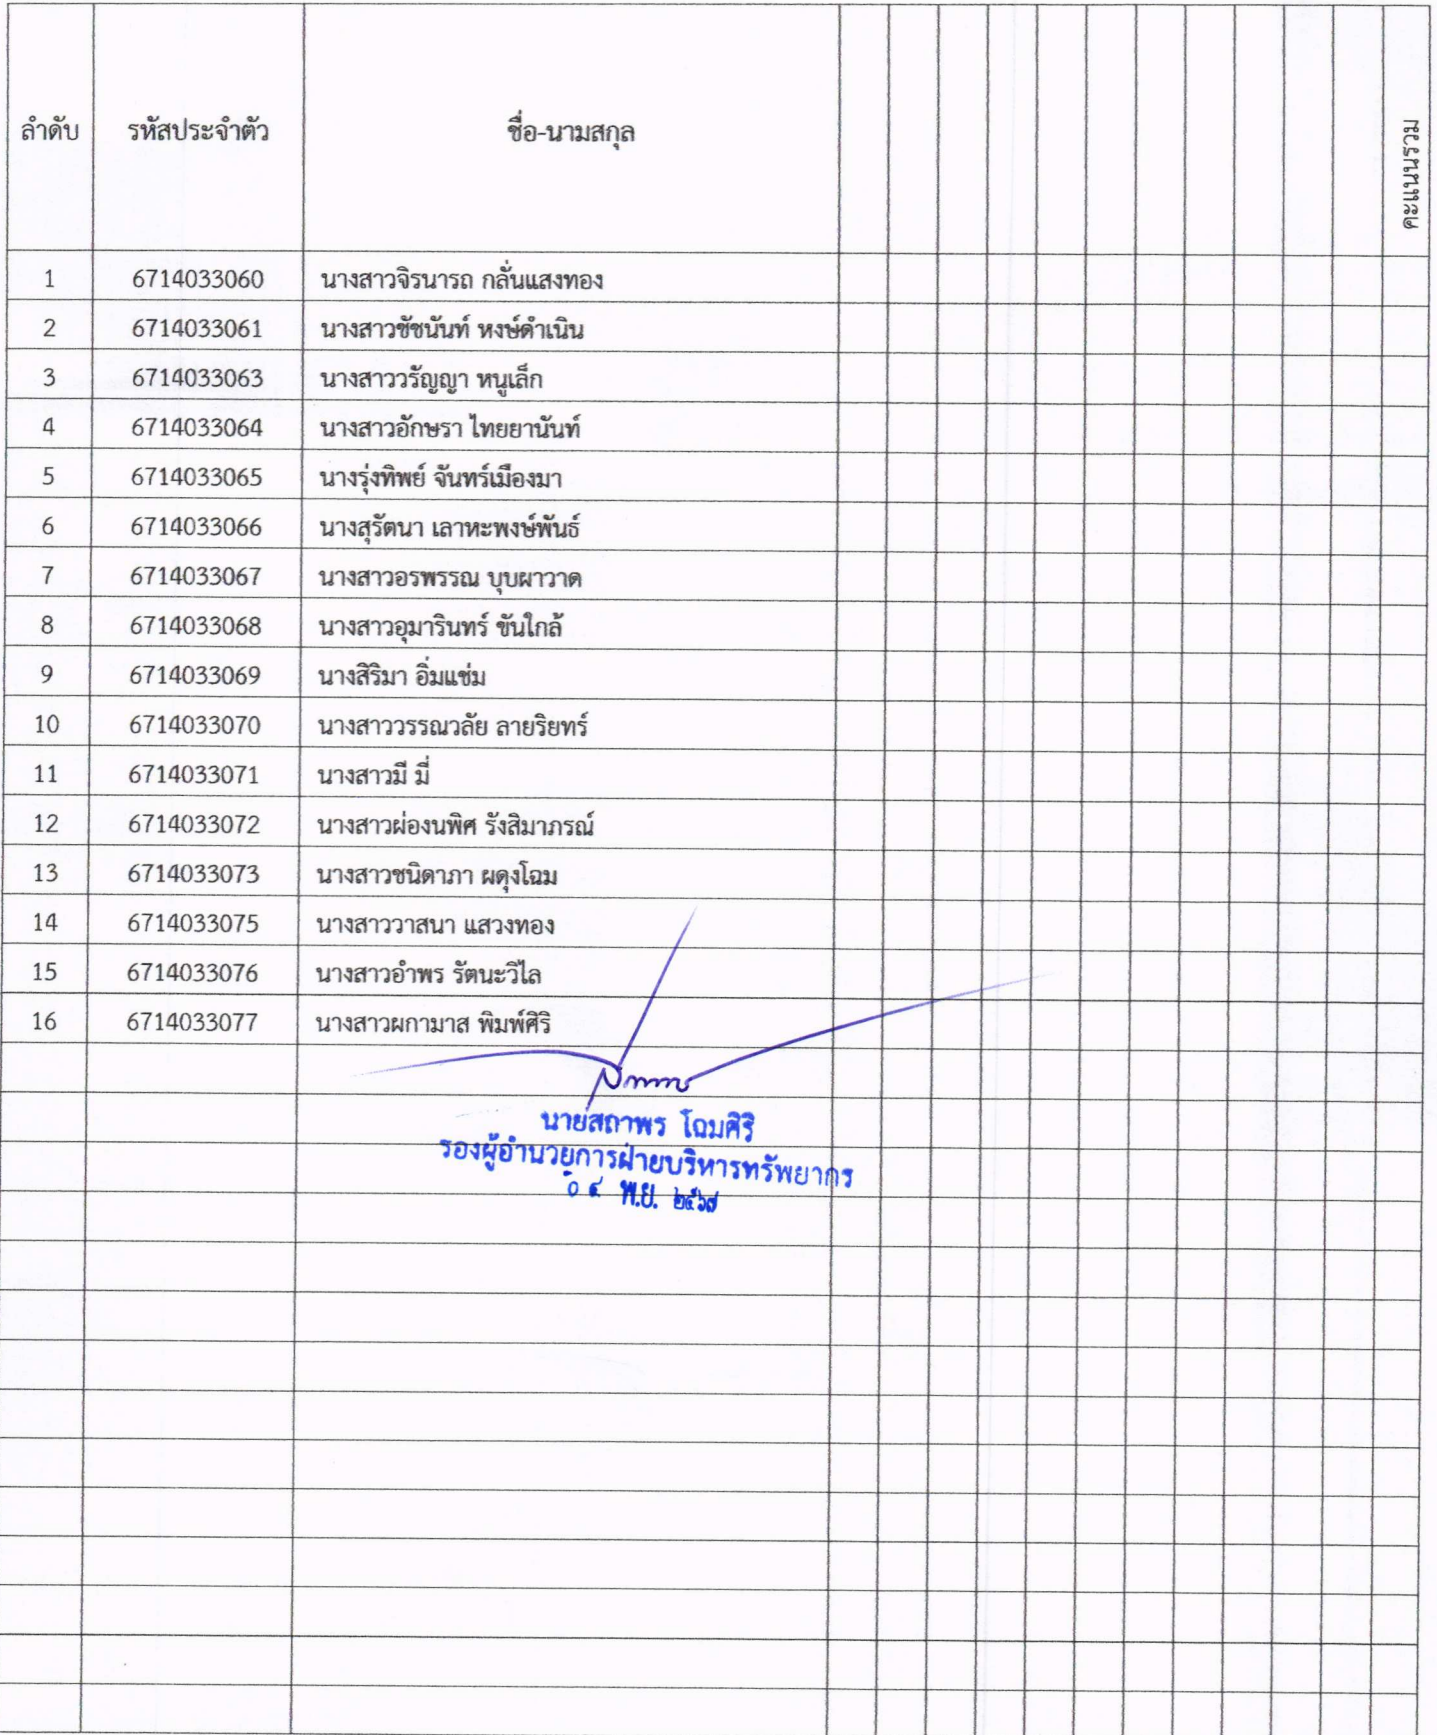 ลำดับ รหัสประจำตัว ชื่อ-นามสกุล คะแนนรวม
1 6714033060 นางสาวจิรนารถ กลั่นแสงทอง
2 6714033061 นางสาวชัชนันท์ หงษ์ดำเนิน
3 6714033063 นางสาววรัญญา หนูเล็ก
4 6714033064 นางสาวอักษรา ไทยยานันท์
5 6714033065 นางรุ่งทิพย์ จันทร์เมืองมา
6 6714033066 นางสุรัตนา เลาหะพงษ์พันธ์
7 6714033067 นางสาวอรพรรณ บุบผาวาด
8 6714033068 นางสาวอุมารินทร์ ขันใกล้
9 6714033069 นางสิริมา อิ่มแช่ม
10 6714033070 นางสาววรรณวลัย ลายริยทร์
11 6714033071 นางสาวมี มี่
12 6714033072 นางสาวผ่องนพิศ รังสิมาภรณ์
13 6714033073 นางสาวชนิดาภา ผดุงโฉม
14 6714033075 นางสาววาสนา แสวงทอง
15 6714033076 นางสาวอำพร รัตนะวิไล
16 6714033077 นางสาวผกามาส พิมพ์ศิริ
นายสถาพร โฉมศิริ
รองผู้อำนวยการฝ่ายบริหารทรัพยากร
๐ ๔ พ.ย. ๒๕๖๗